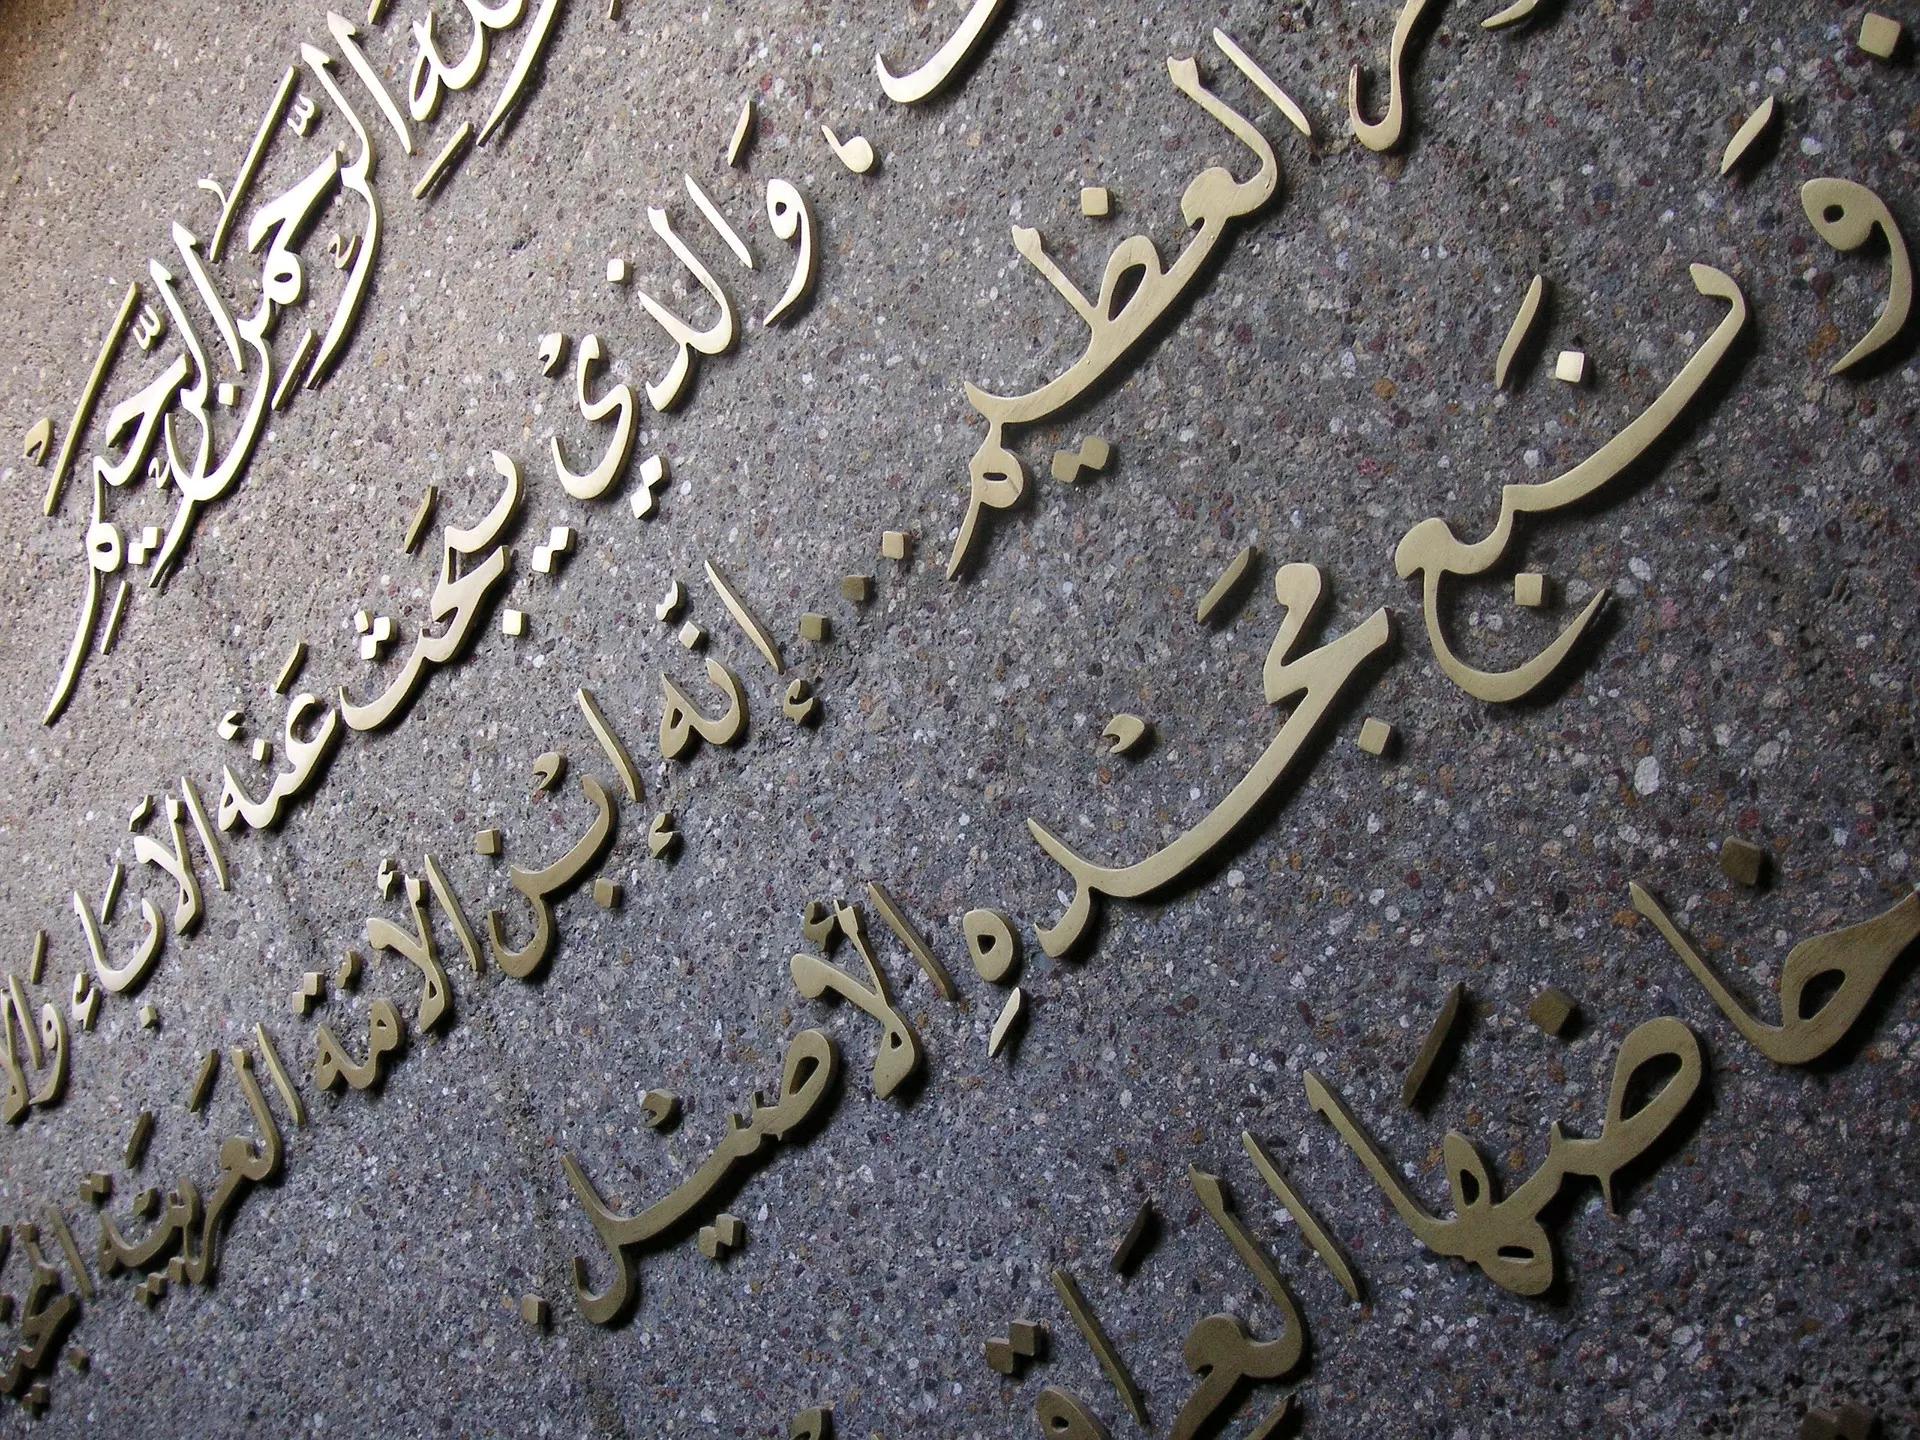 الرَّحمن الرَّحيم
، وَالذيْ يبحَث عَنْه الآبَاء
العظيم ... إنّه إبْن الأمّة العَربيّة
وَنَبع مَجْدهِ الأصيْل .
خاضهَا